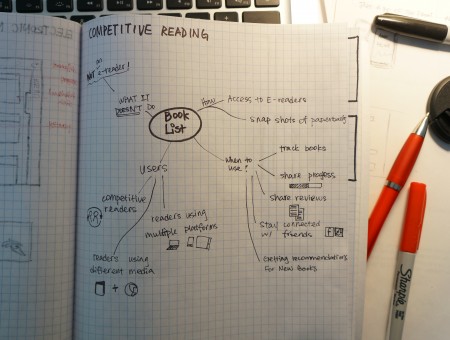 COMPETITIVE READING
NOT e-reader!
WHAT IT
DOESN'T DO
Book
List
How
Access to E-readers
snap shots of
When to
use?
track books
share progress
share reviews
Stay connected
w/ friends
Getting recommendations
for New books
Users
competitive
readers
readers using
multiple platforms
readers using
different media
+
Sharpie